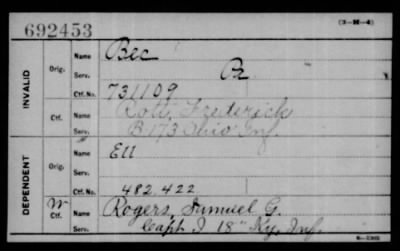 692453
(3-M-4)
INVALID
Orig.
Name Bec
Serv. Br
Ctf. No. 731109
Ctf.
Name Rott, Frederick
Serv. B 173 Ohio Inf.
DEPENDENT
Orig.
Name Ell
Serv.
Ctf. No. 482,422
W
Ctf.
Name Rogers, Samuel G.
Serv. Capt I 18" Ky. Inf.